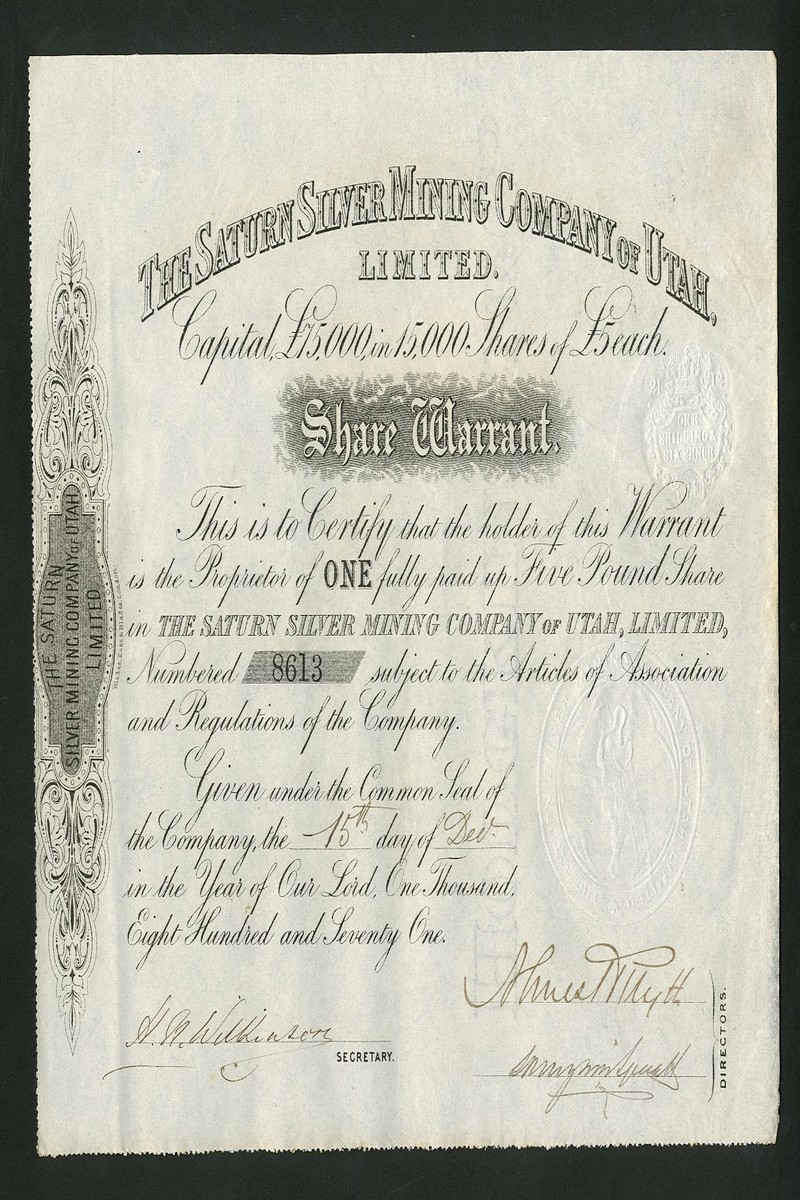 THE SATURN SILVER MINING COMPANY OF UTAH,
LIMITED.
Capital, £75,000, in 15,000 Shares of £5 each.
Share Warrant.
ONE
SHILLING &
SIX PENCE
This is to Certify that the holder of this Warrant
is the Proprietor of ONE fully paid up Five Pound Share
in THE SATURN SILVER MINING COMPANY OF UTAH, LIMITED,
Numbered 8613 subject to the Articles of Association
and Regulations of the Company.
Given under the Common Seal of
the Company, the 15th day of Decr
in the Year of Our Lord, One Thousand,
Eight Hundred and Seventy One.
Wilkinson
SECRETARY.
DIRECTORS.
THE SATURN
SILVER MINING COMPANY OF UTAH
LIMITED